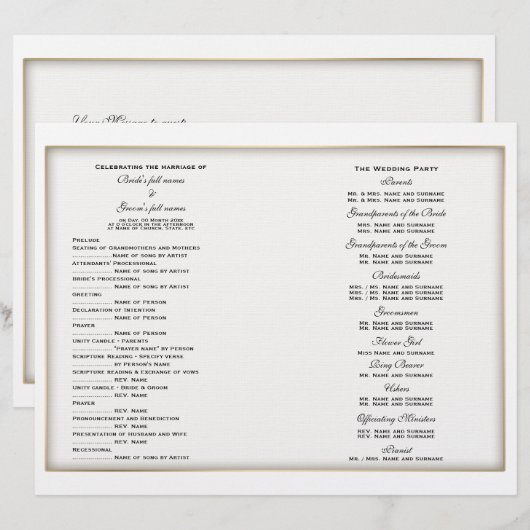 Your Message to guests
Celebrating the marriage of
Bride's full names
&
Groom's full names
on Day, 00 Month 20xx
at 0 o'clock in the afternoon
at Name of Church, State, etc
Prelude
Seating of Grandmothers and Mothers
...................Name of song by Artist
Attendants' Processional
................... Name of song by Artist
Bride's Processional
................... Name of song by Artist
Greeting
................... Name of Person
Declaration of Intention
................... Name of Person
Prayer
................... Name of Person
Unity Candle - Parents
................... "Prayer name" by Person
Scripture Reading - Specify verse
................... by Person's Name
Scripture reading & Exchange of vows
................... Rev. Name
Unity candle - Bride & Groom
................... Rev. Name
Prayer
................... Rev. Name
Pronouncement and Benediction
................... Rev. Name
Presentation of Husband and Wife
................... Rev. Name
Recessional
................... Name of song by Artist
The Wedding Party
Parents
Mr. & Mrs. Name and Surname
Mr. & Mrs. Name and Surname
Grandparents of the Bride
Mr. and Mrs. Name and Surname
Mr. and Mrs. Name and Surname
Grandparents of the Groom
Mr. and Mrs. Name and Surname
Mr. and Mrs. Name and Surname
Bridesmaids
Mrs. / Ms. Name and Surname
Mrs. / Ms. Name and Surname
Mrs. / Ms. Name and Surname
Groomsmen
Mr. Name and Surname
Mr. Name and Surname
Flower Girl
Miss Name and Surname
Ring Bearer
Mr. Name and Surname
Ushers
Mr. Name and Surname
Mr. Name and Surname
Officiating Ministers
Rev. Name and Surname
Rev. Name and Surname
Pianist
Mr. / Mrs. Name and Surname